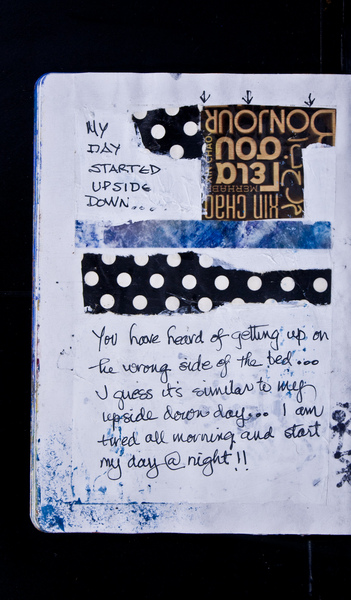 MY
DAY
STARTED
UPSIDE
DOWN....
BONJOUR
XIN CHÀO
ΓΕΙΑ
ΣΟΥ
MERHABA
XIN CHÀO
You have heard of getting up on
the wrong side of the bed...
I guess it's similar to my
upside down day... I am
tired all morning and start
my day @ night!!